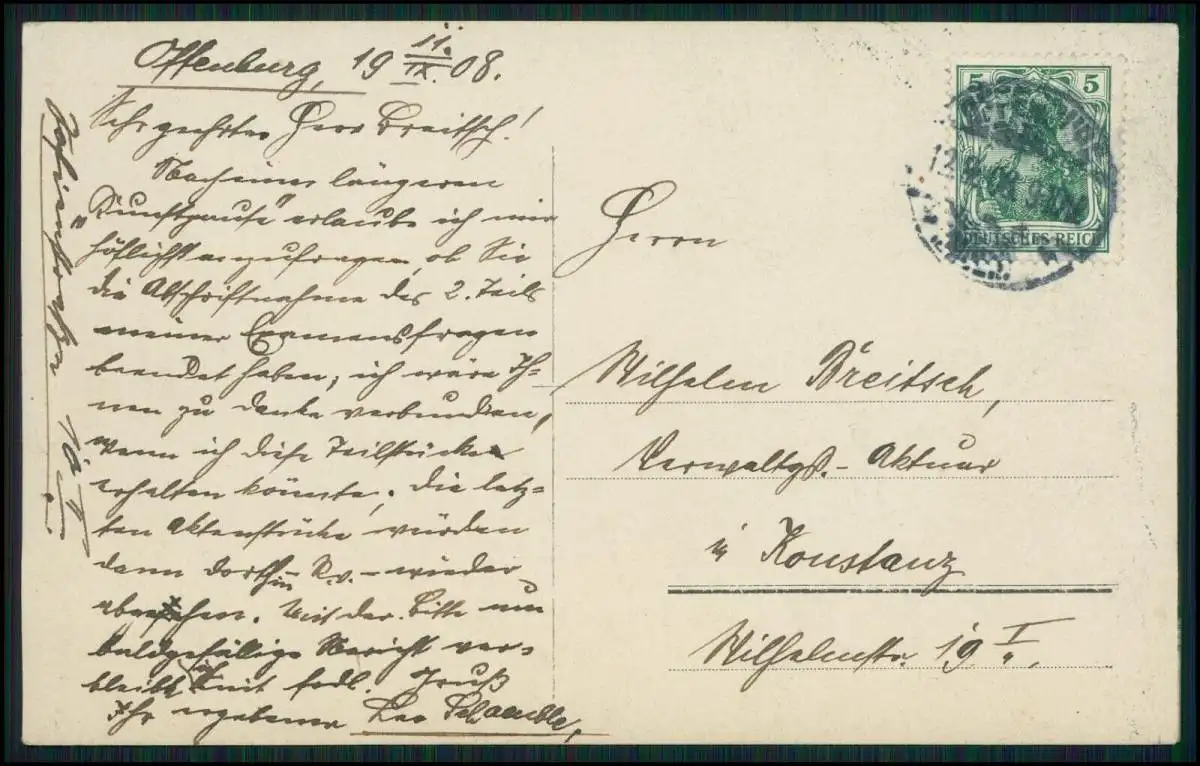 Offenburg, 19 11./IX. 08.
Sehr geehrter Herr Breitsch!
Nach einer längeren
„Kunstpause" erlaube ich mir
höflichst anzufragen, ob Sie
die Abschriftnahme des 2. Teils
meiner Examensfragen
beendet haben; ich wäre Ih-
nen zu Danke verbunden,
wenn ich diese Teilstücke
erhalten könnte; die letz-
ten Aktenstücke würden
dann dorthin – R.v. – wieder
abgehen. Mit der Bitte um
baldgefällige Nachricht ver-
bleibt mit frdl. Gruß
Ihr ergebener Leo Schaeuble,
Herrn
Wilhelm Breitsch,
Verwaltgs.-Aktuar
in Konstanz
Wilhelmstr. 19 I.
5 5
DEUTSCHES REICH